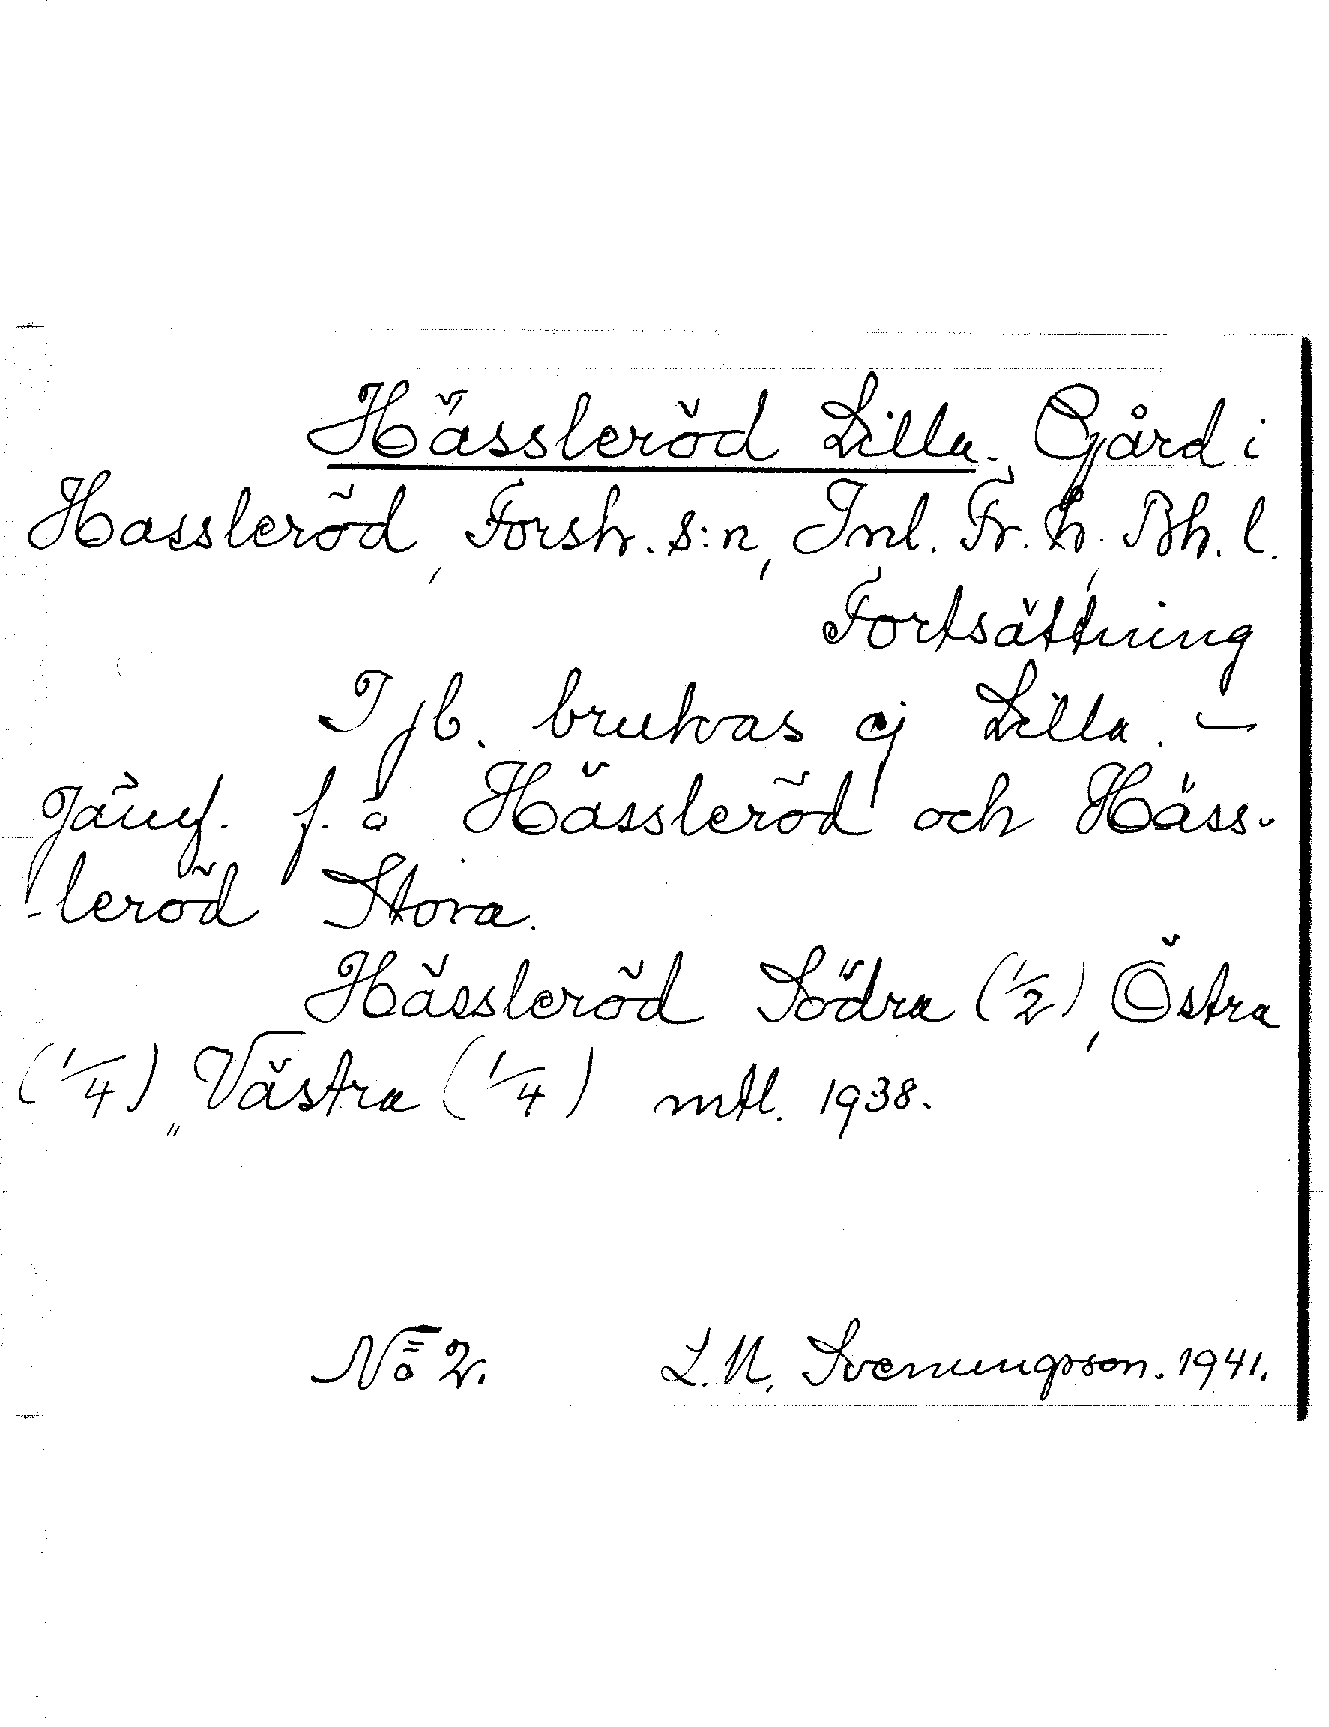 Hässleröd Lilla. Gård i
Hassleröd, Forsh. s:n, Inl. Fr. h. Bh. l.
Fortsättning
I jb. brukas ej Lilla. —
Jämf. f. ö. Hässleröd och Häss-
-leröd Stora.
Hässleröd Södra (1/2), Östra
(1/4), Västra (1/4) mtl. 1938.
No 2. L. N. Svenungsson. 1941.